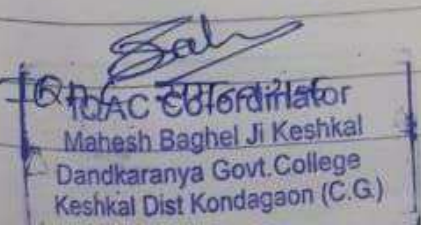 IQAC Coordinator
Mahesh Baghel Ji Keshkal
Dandkaranya Govt. College
Keshkal Dist Kondagaon (C.G.)